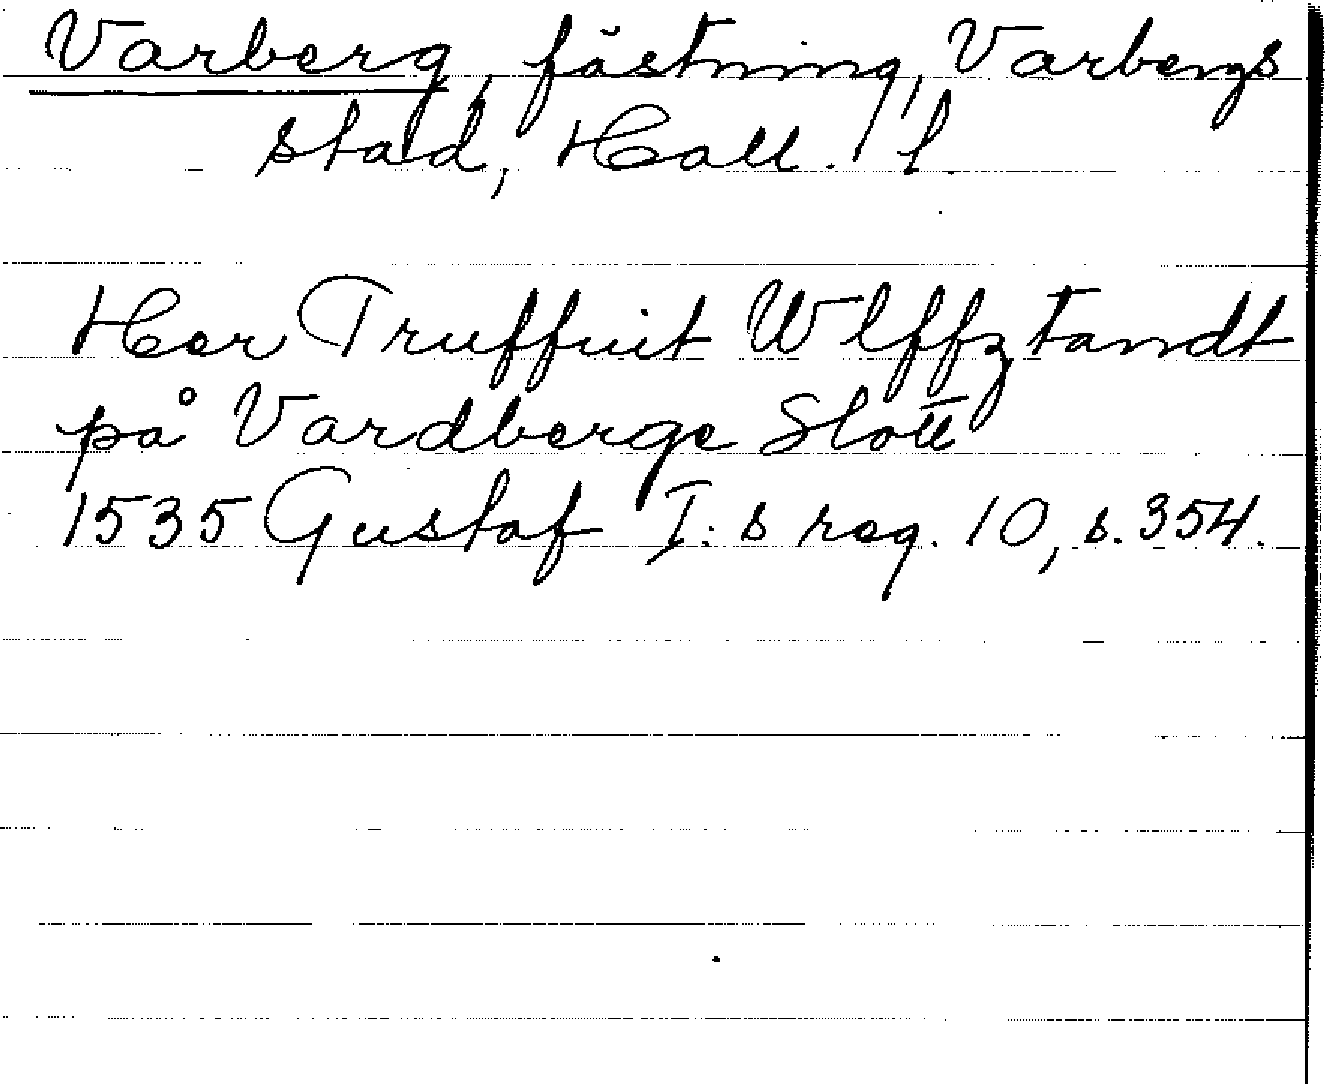 Varberg, fästning, Varbergs
stad, Hall. l.
Her Truffuit Wlffztandt
på Vardberge Slott
1535 Gustaf I:s reg. 10, s. 354.